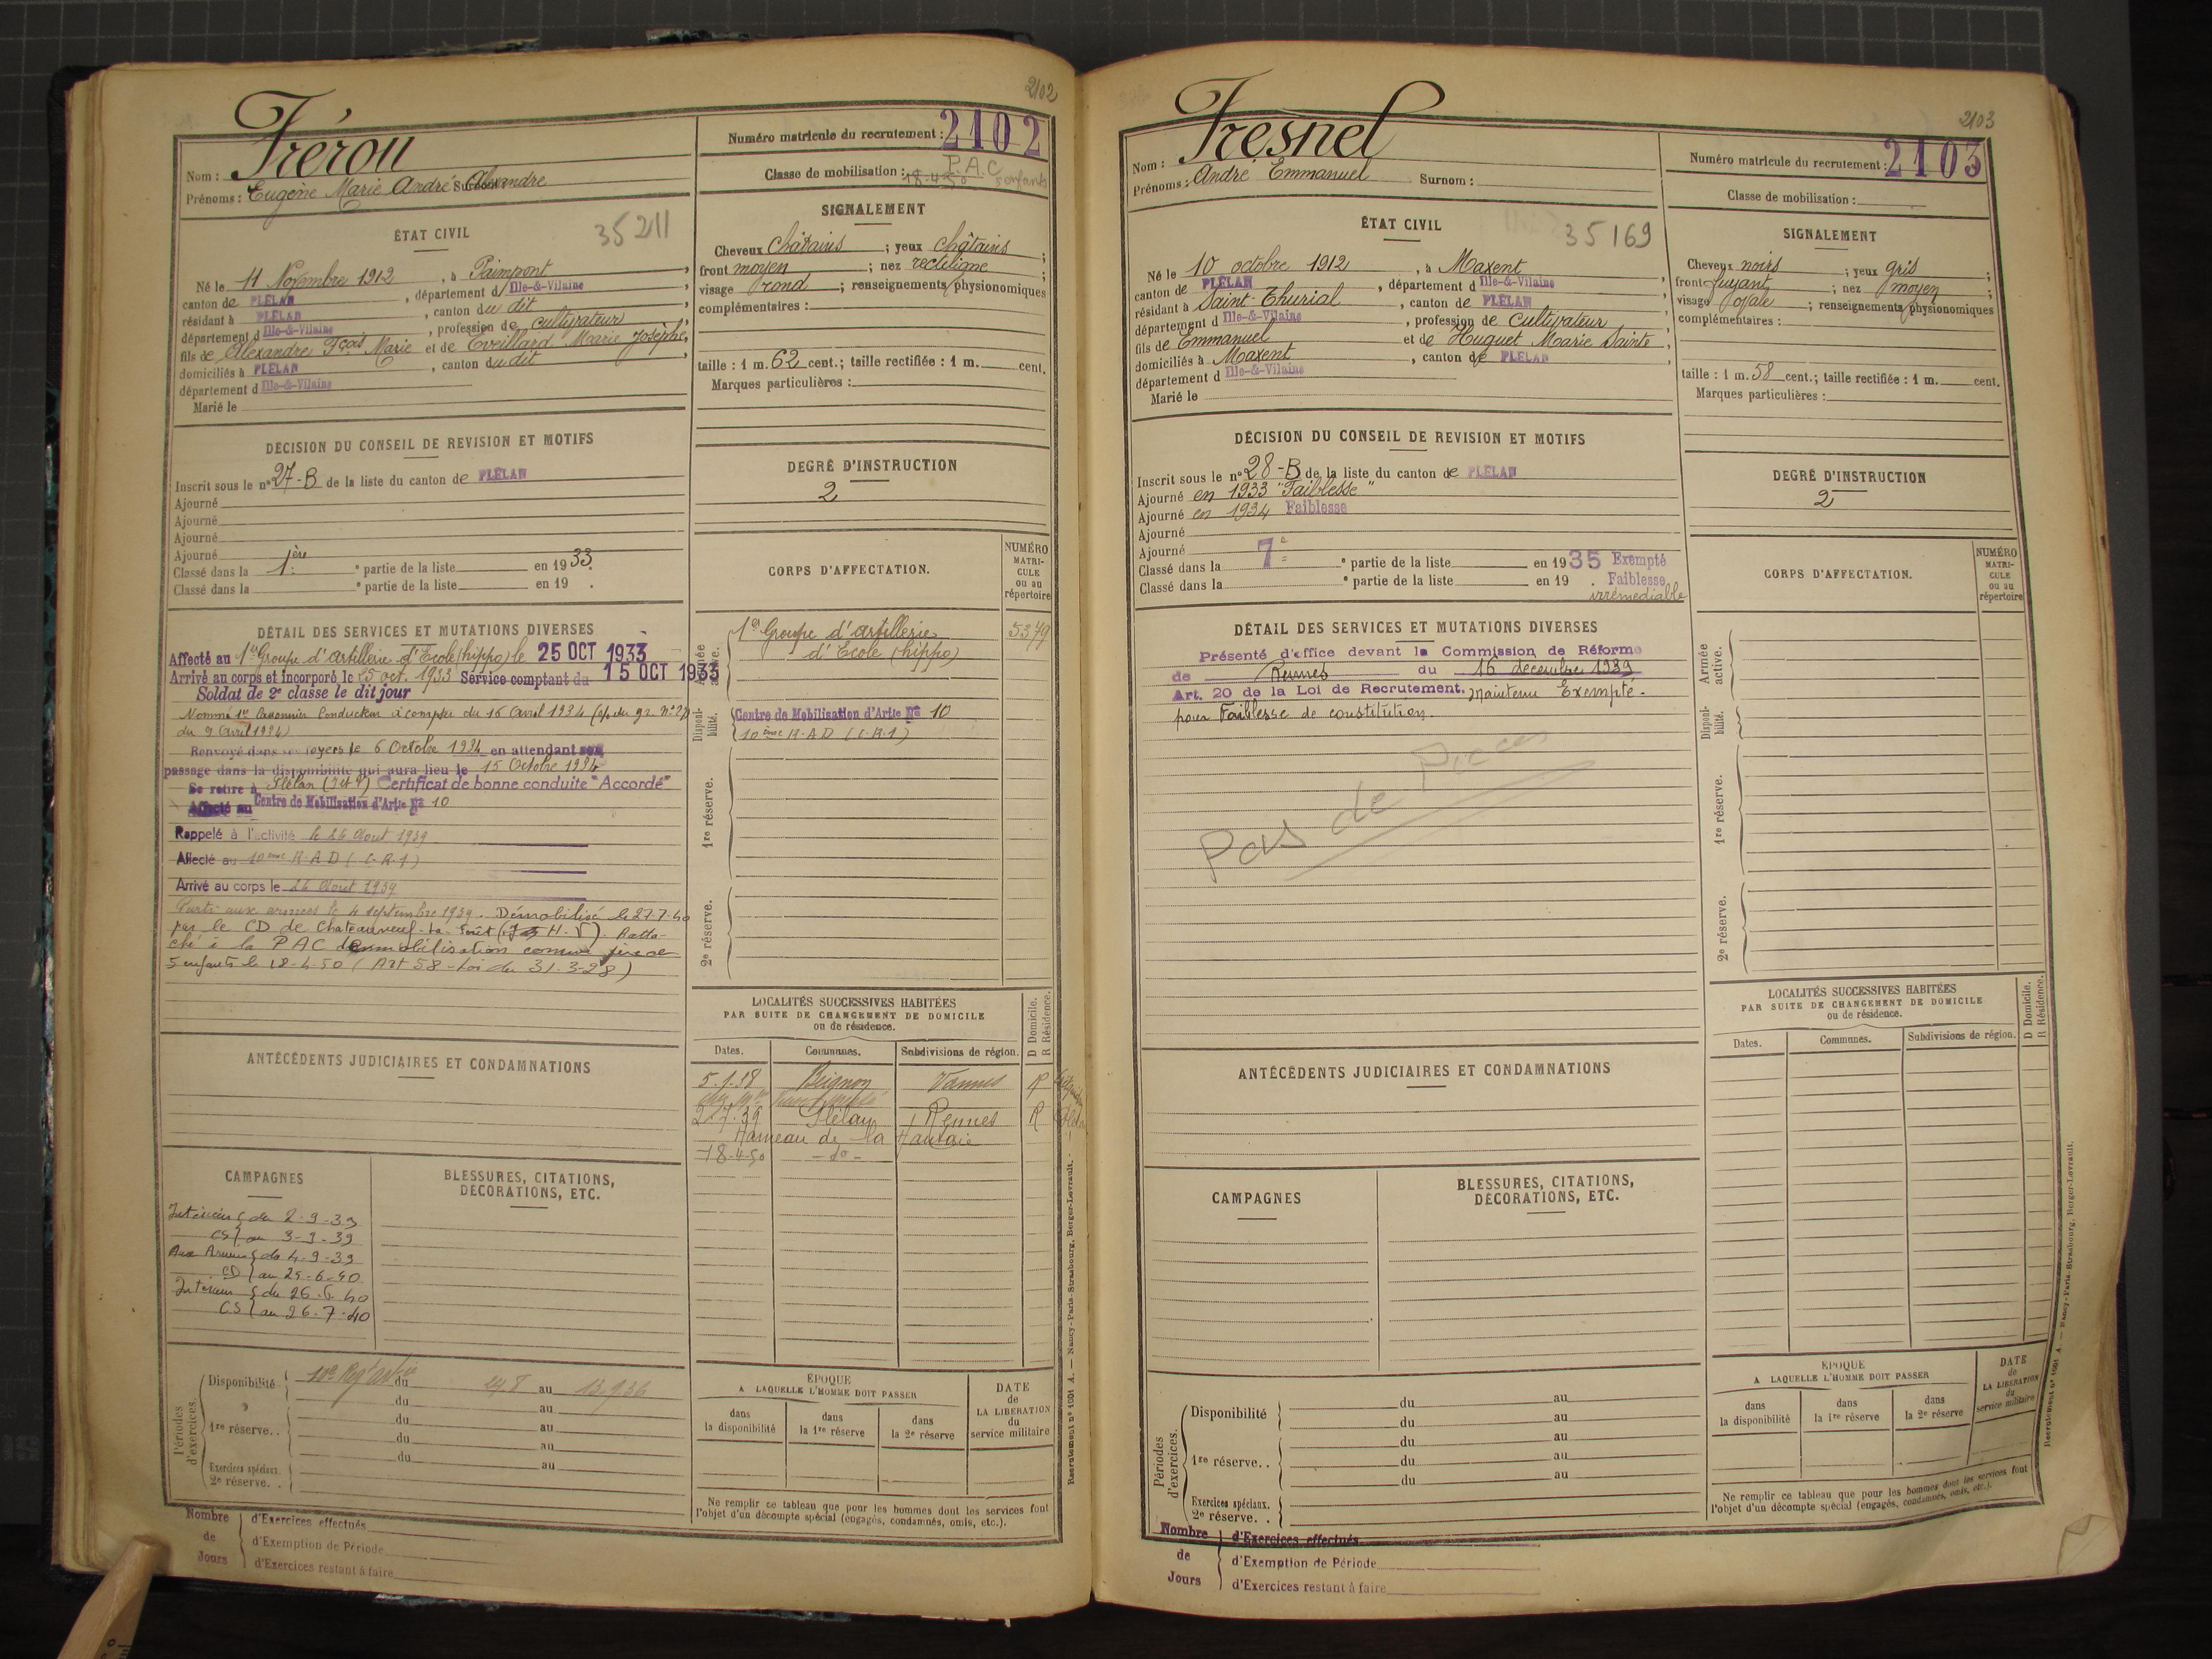 2102
Frérou
Nom :
Prénoms : Eugène Marie André Alexandre
Numéro matricule du recrutement : 2102
Classe de mobilisation : P.A.C
18-4-50 5 enfants
ÉTAT CIVIL
35211
Né le 11 Novembre 1912, à Paimpont,
canton de PLÉLAN, département d Ille-&-Vilaine,
résidant à PLÉLAN, canton du dit
département d Ille-&-Vilaine, profession de cultivateur,
fils de Alexandre Fçois Marie et de Eveillard Marie Josèphe,
domiciliés à PLÉLAN, canton du dit,
département d Ille-&-Vilaine
Marié le
SIGNALEMENT
Cheveux châtains ; yeux châtains ;
front moyen ; nez rectiligne ;
visage rond ; renseignements physionomiques
complémentaires :
taille : 1 m. 62 cent.; taille rectifiée : 1 m. cent.
Marques particulières :
DÉCISION DU CONSEIL DE REVISION ET MOTIFS
Inscrit sous le n° 27-B de la liste du canton de PLÉLAN
Ajourné
Ajourné
Ajourné
Ajourné
Classé dans la 1ère partie de la liste en 1933.
Classé dans la ° partie de la liste en 19 .
DEGRÉ D'INSTRUCTION
2
DÉTAIL DES SERVICES ET MUTATIONS DIVERSES
Affecté au 1er Groupe d'artillerie d'Ecole (hippo) le 25 OCT 1933
Arrivé au corps et incorporé le 25 oct. 1933 Service comptant du 15 OCT 1933
Soldat de 2e classe le dit jour
Nommé 1er Canonnier Conducteur à compter du 16 Avril 1934
du 9 Avril 1934)
Renvoyé dans ses foyers le 6 Octobre 1934 en attendant son
passage dans la disponibilité qui aura lieu le 15 Octobre 1934
Se retire à Plélan (I et V) Certificat de bonne conduite "Accordé"
Affecté au Centre de Mobilisation d'Artie No 10
Rappelé à l'activité le 26 Aout 1939
Affecté au 10ème R.A.D (C.R.1)
Arrivé au corps le 26 Aout 1939
Parti aux armées le 4 septembre 1939. Démobilisé le 27-7-40
par le CD de Chateauneuf-la Forêt (H.V). Ratta-
ché à la PAC de mobilisation comme père de
5 enfants le 18-4-50 (Art 58 - Loi du 31.3.28)
CORPS D'AFFECTATION.
NUMÉRO MATRICULE ou au répertoire
Armée active.
1er Groupe d'artillerie 5379
d'Ecole (hippo)
Disponibilité.
Centre de Mobilisation d'Artie No 10
10ème R.A.D (C.R.1)
1re réserve.
2e réserve.
ANTÉCÉDENTS JUDICIAIRES ET CONDAMNATIONS
LOCALITÉS SUCCESSIVES HABITÉES
PAR SUITE DE CHANGEMENT DE DOMICILE
ou de résidence.
Dates. Communes. Subdivisions de région. D Domicile. R Résidence.
5.1.38 Beignon Vannes R
2.7.39 Plélan Rennes R
Hameau de la
18-4-50 -do-
CAMPAGNES
Intérieur { du 2-9-39
CS { au 3-9-39
Aux Armées { du 4-9-39
CD { au 25-6-40
Intérieur { du 26-6-40
CS { au 26-7-40
BLESSURES, CITATIONS,
DÉCORATIONS, ETC.
Périodes d'exercices.
Disponibilité 10e Reg du au 13.9.36
1re réserve. . du au
Exercices spéciaux.
2e réserve. .
ÉPOQUE
A LAQUELLE L'HOMME DOIT PASSER
dans la disponibilité
dans la 1re réserve
dans la 2e réserve
DATE de LA LIBÉRATION du service militaire
Ne remplir ce tableau que pour les hommes dont les services font
l'objet d'un décompte spécial (engagés, condamnés, omis, etc.).
Nombre de Jours
d'Exercices effectués
d'Exemption de Période
d'Exercices restant à faire
Recrutement n° 1001 A. — Nancy-Paris-Strasbourg, Berger-Levrault.
2103
Fresnel
Nom :
Prénoms : André Emmanuel Surnom :
Numéro matricule du recrutement : 2103
Classe de mobilisation :
ÉTAT CIVIL
35169
Né le 10 octobre 1912, à Maxent,
canton de PLÉLAN, département d Ille-&-Vilaine
résidant à Saint-Thurial, canton de PLÉLAN
département d Ille-&-Vilaine, profession de cultivateur,
fils de Emmanuel et de Huguet Marie Sainte,
domiciliés à Maxent, canton de PLÉLAN,
département d Ille-&-Vilaine
Marié le
SIGNALEMENT
Cheveux noirs ; yeux gris ;
front fuyant ; nez moyen ;
visage ovale ; renseignements physionomiques
complémentaires :
taille : 1 m. 58 cent.; taille rectifiée : 1 m. cent.
Marques particulières :
DÉCISION DU CONSEIL DE REVISION ET MOTIFS
Inscrit sous le n° 28-B de la liste du canton de PLÉLAN
Ajourné en 1933 "Faiblesse"
Ajourné en 1934 Faiblesse
Ajourné
Ajourné
Classé dans la 7e partie de la liste en 1935 Exempté
Classé dans la ° partie de la liste en 19 . Faiblesse
irrémédiable
DEGRÉ D'INSTRUCTION
2
DÉTAIL DES SERVICES ET MUTATIONS DIVERSES
Présenté d'office devant la Commission de Réforme
de Rennes du 16 décembre 1939
Art. 20 de la Loi de Recrutement. Maintenu Exempté.
pour Faiblesse de constitution.
Pas de Pièces
CORPS D'AFFECTATION.
NUMÉRO MATRICULE ou au répertoire
Armée active.
Disponibilité.
1re réserve.
2e réserve.
LOCALITÉS SUCCESSIVES HABITÉES
PAR SUITE DE CHANGEMENT DE DOMICILE
ou de résidence.
Dates. Communes. Subdivisions de région. D Domicile. R Résidence.
ANTÉCÉDENTS JUDICIAIRES ET CONDAMNATIONS
CAMPAGNES
BLESSURES, CITATIONS,
DÉCORATIONS, ETC.
Périodes d'exercices.
Disponibilité du au
1re réserve. . du au
Exercices spéciaux.
2e réserve. .
ÉPOQUE
A LAQUELLE L'HOMME DOIT PASSER
dans la disponibilité
dans la 1re réserve
dans la 2e réserve
DATE de LA LIBÉRATION du service militaire
Ne remplir ce tableau que pour les hommes dont les services font
l'objet d'un décompte spécial (engagés, condamnés, omis, etc.).
Nombre de Jours
d'Exercices effectués
d'Exemption de Période
d'Exercices restant à faire
Recrutement n° 1001 A. — Nancy-Paris-Strasbourg, Berger-Levrault.